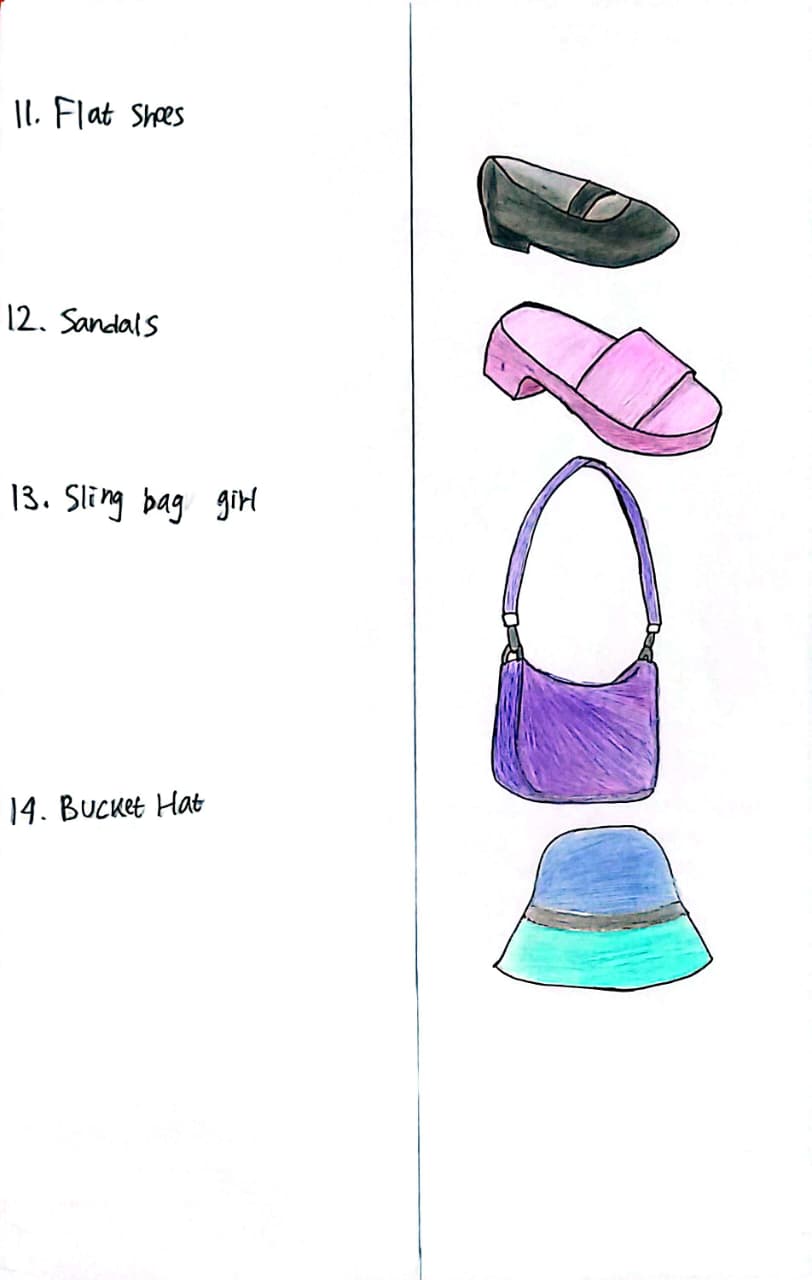 11. Flat Shoes
12. Sandals
13. Sling bag girl
14. Bucket Hat